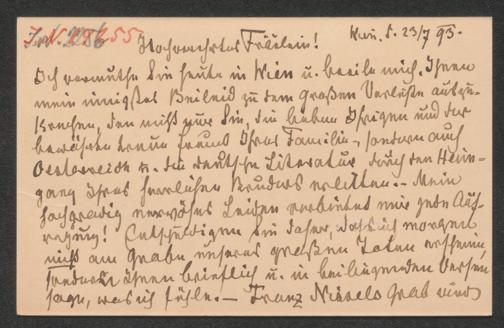 I. N. 29255
Wien, d. 23/7 93.
Hochverehrtes Fräulein!
Ich vermuthe Sie heute in Wien u. beeile mich, Ihnen
mein innigstes Beileid zu dem großen Verluste auszu-
sprechen, den nicht nur Sie, die lieben Ihrigen und der
bewährte treue Freund Ihrer Familie, sondern auch
Oesterreich u. die deutsche Literatur durch den Heim-
gang Ihres herrlichen Bruders erlitten. - Mein
hochgradig nervöses Leiden verbietet mir jede Auf-
regung! Entschuldigen Sie daher, daß ich morgen
nicht am Grabe unseres großen Toten erscheine,
sondern Ihnen brieflich u. in beiliegenden Versen
sage, was ich fühle. - Franz Nissels Grab wird